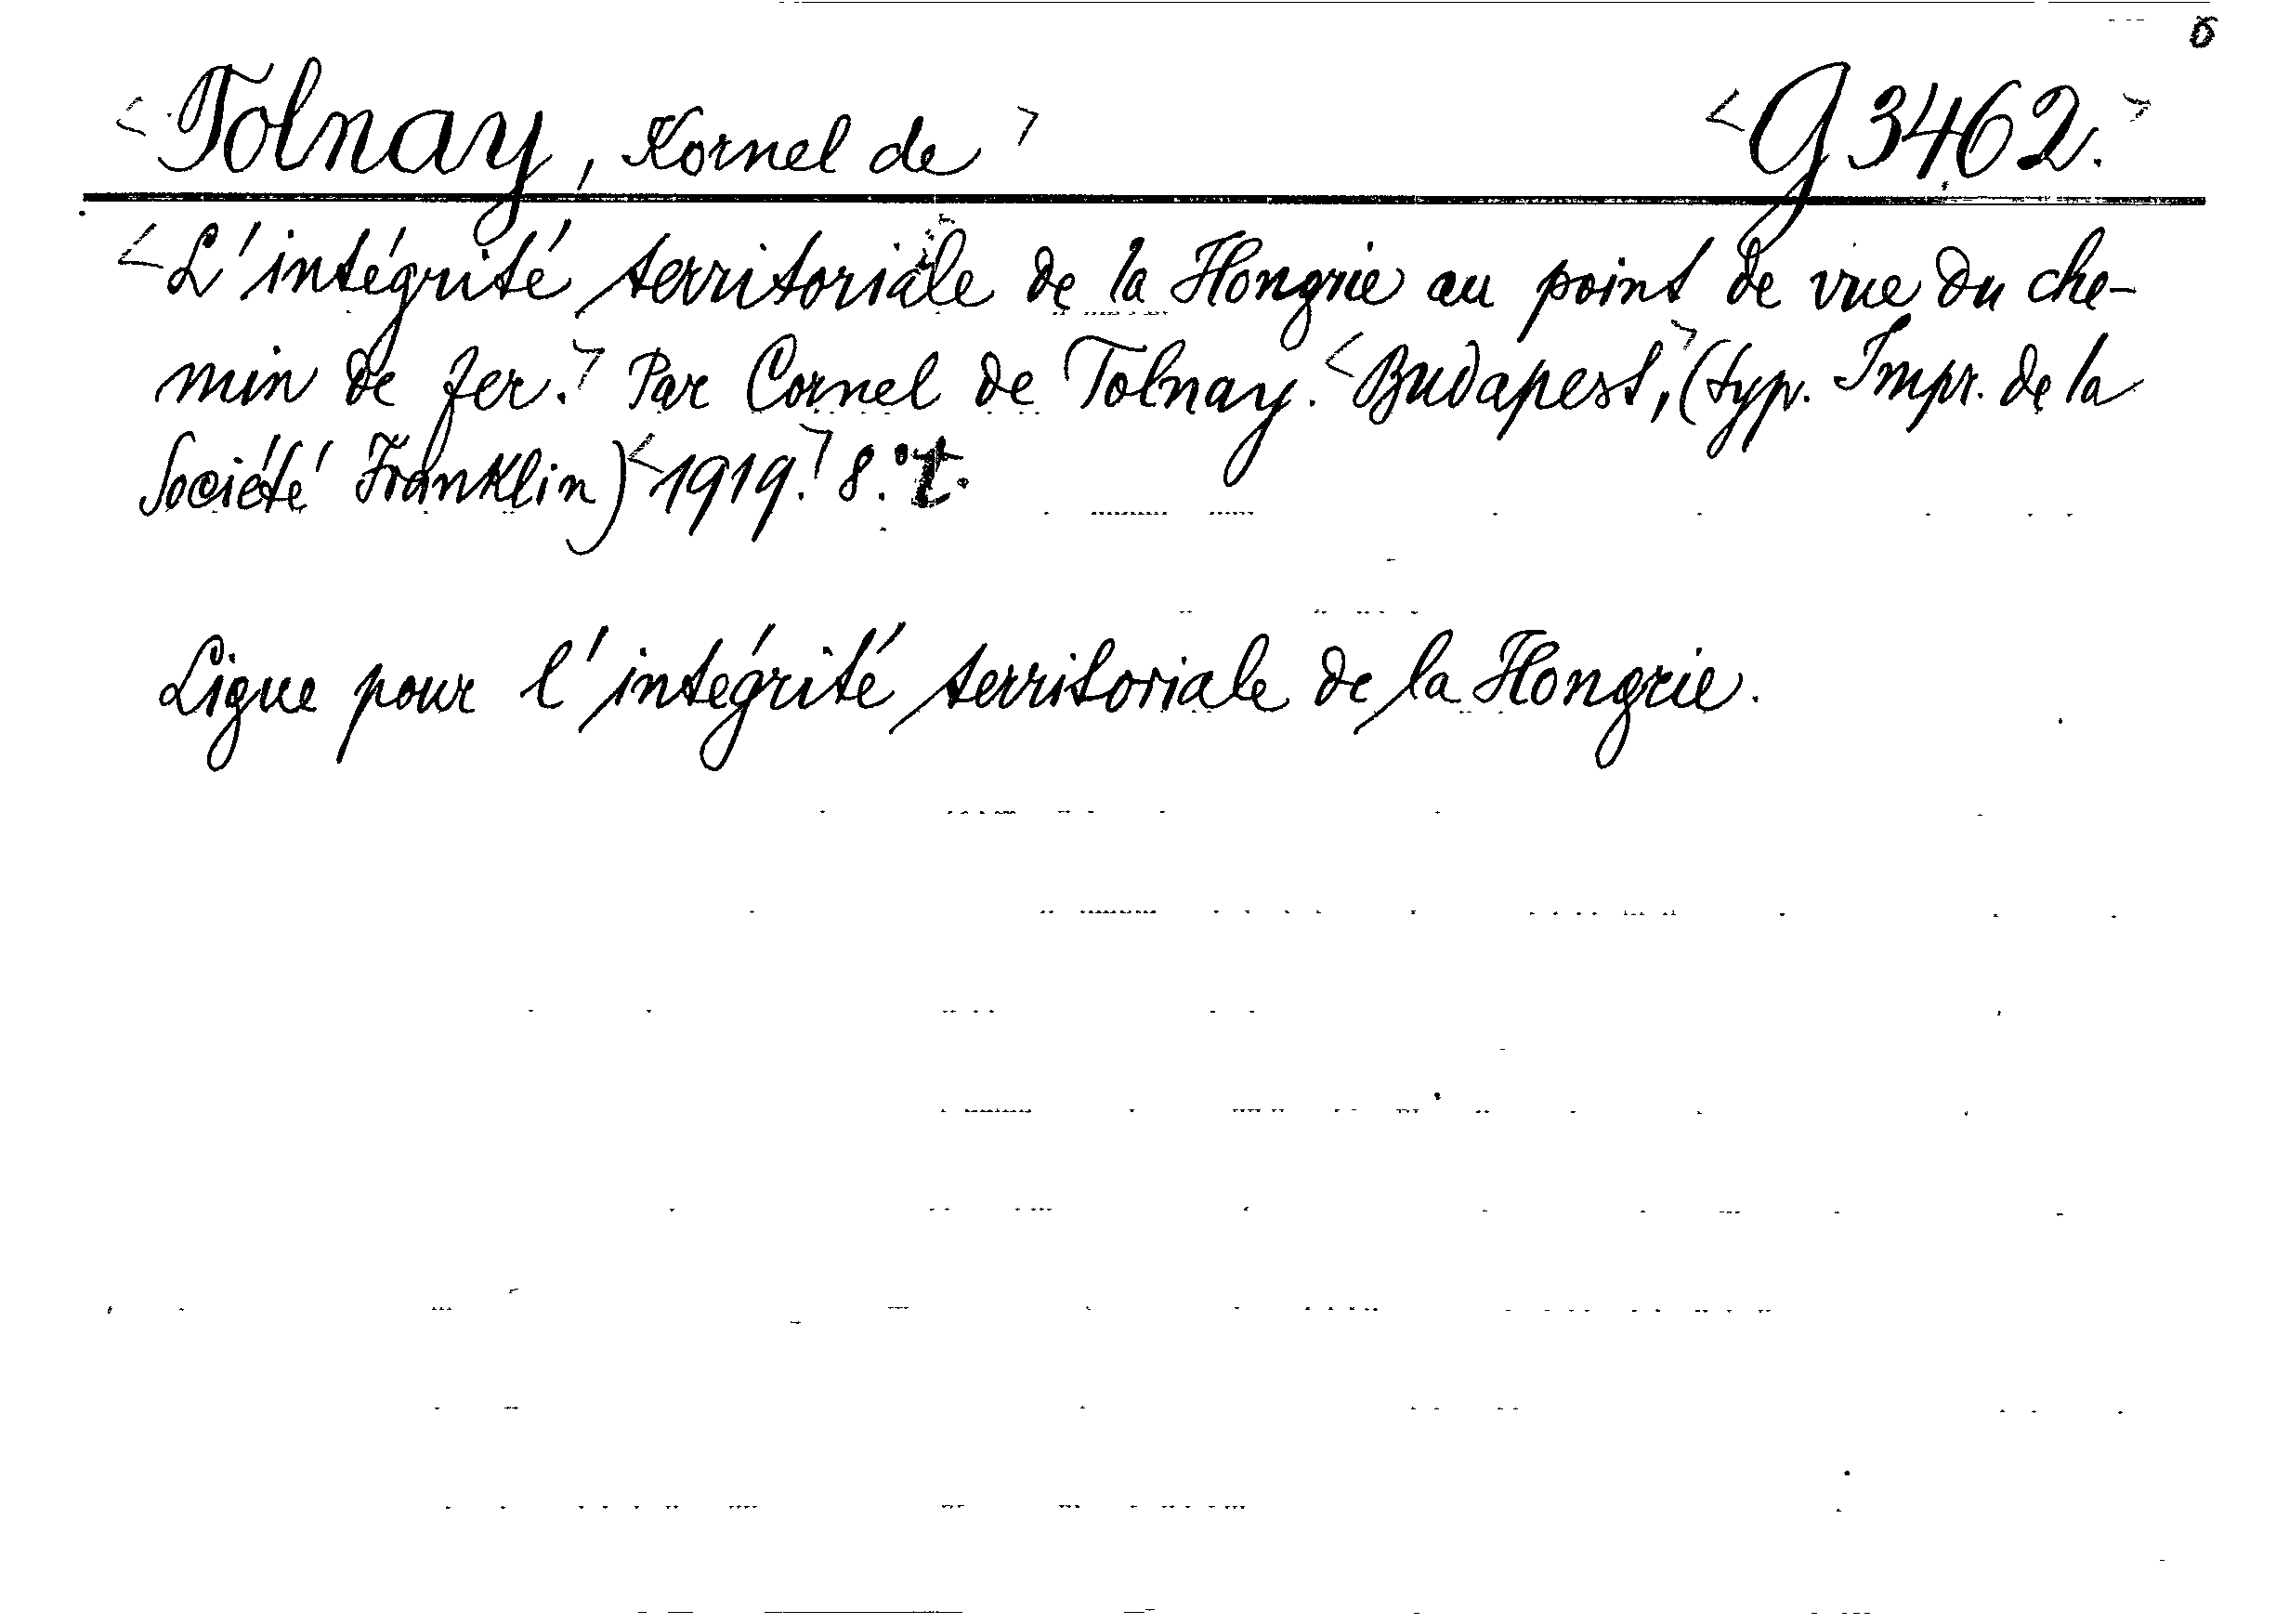 б
<Tolnay, Kornel de> <G 3462.>
<L'intégrité territoriale de la Hongrie au point de vue du che-
min de fer.> Par Cornel de Tolnay. <Budapest,> (typ. Impr. de la
Société Franklin) <1919.> 8.° t.
Ligue pour l'intégrité territoriale de la Hongrie.